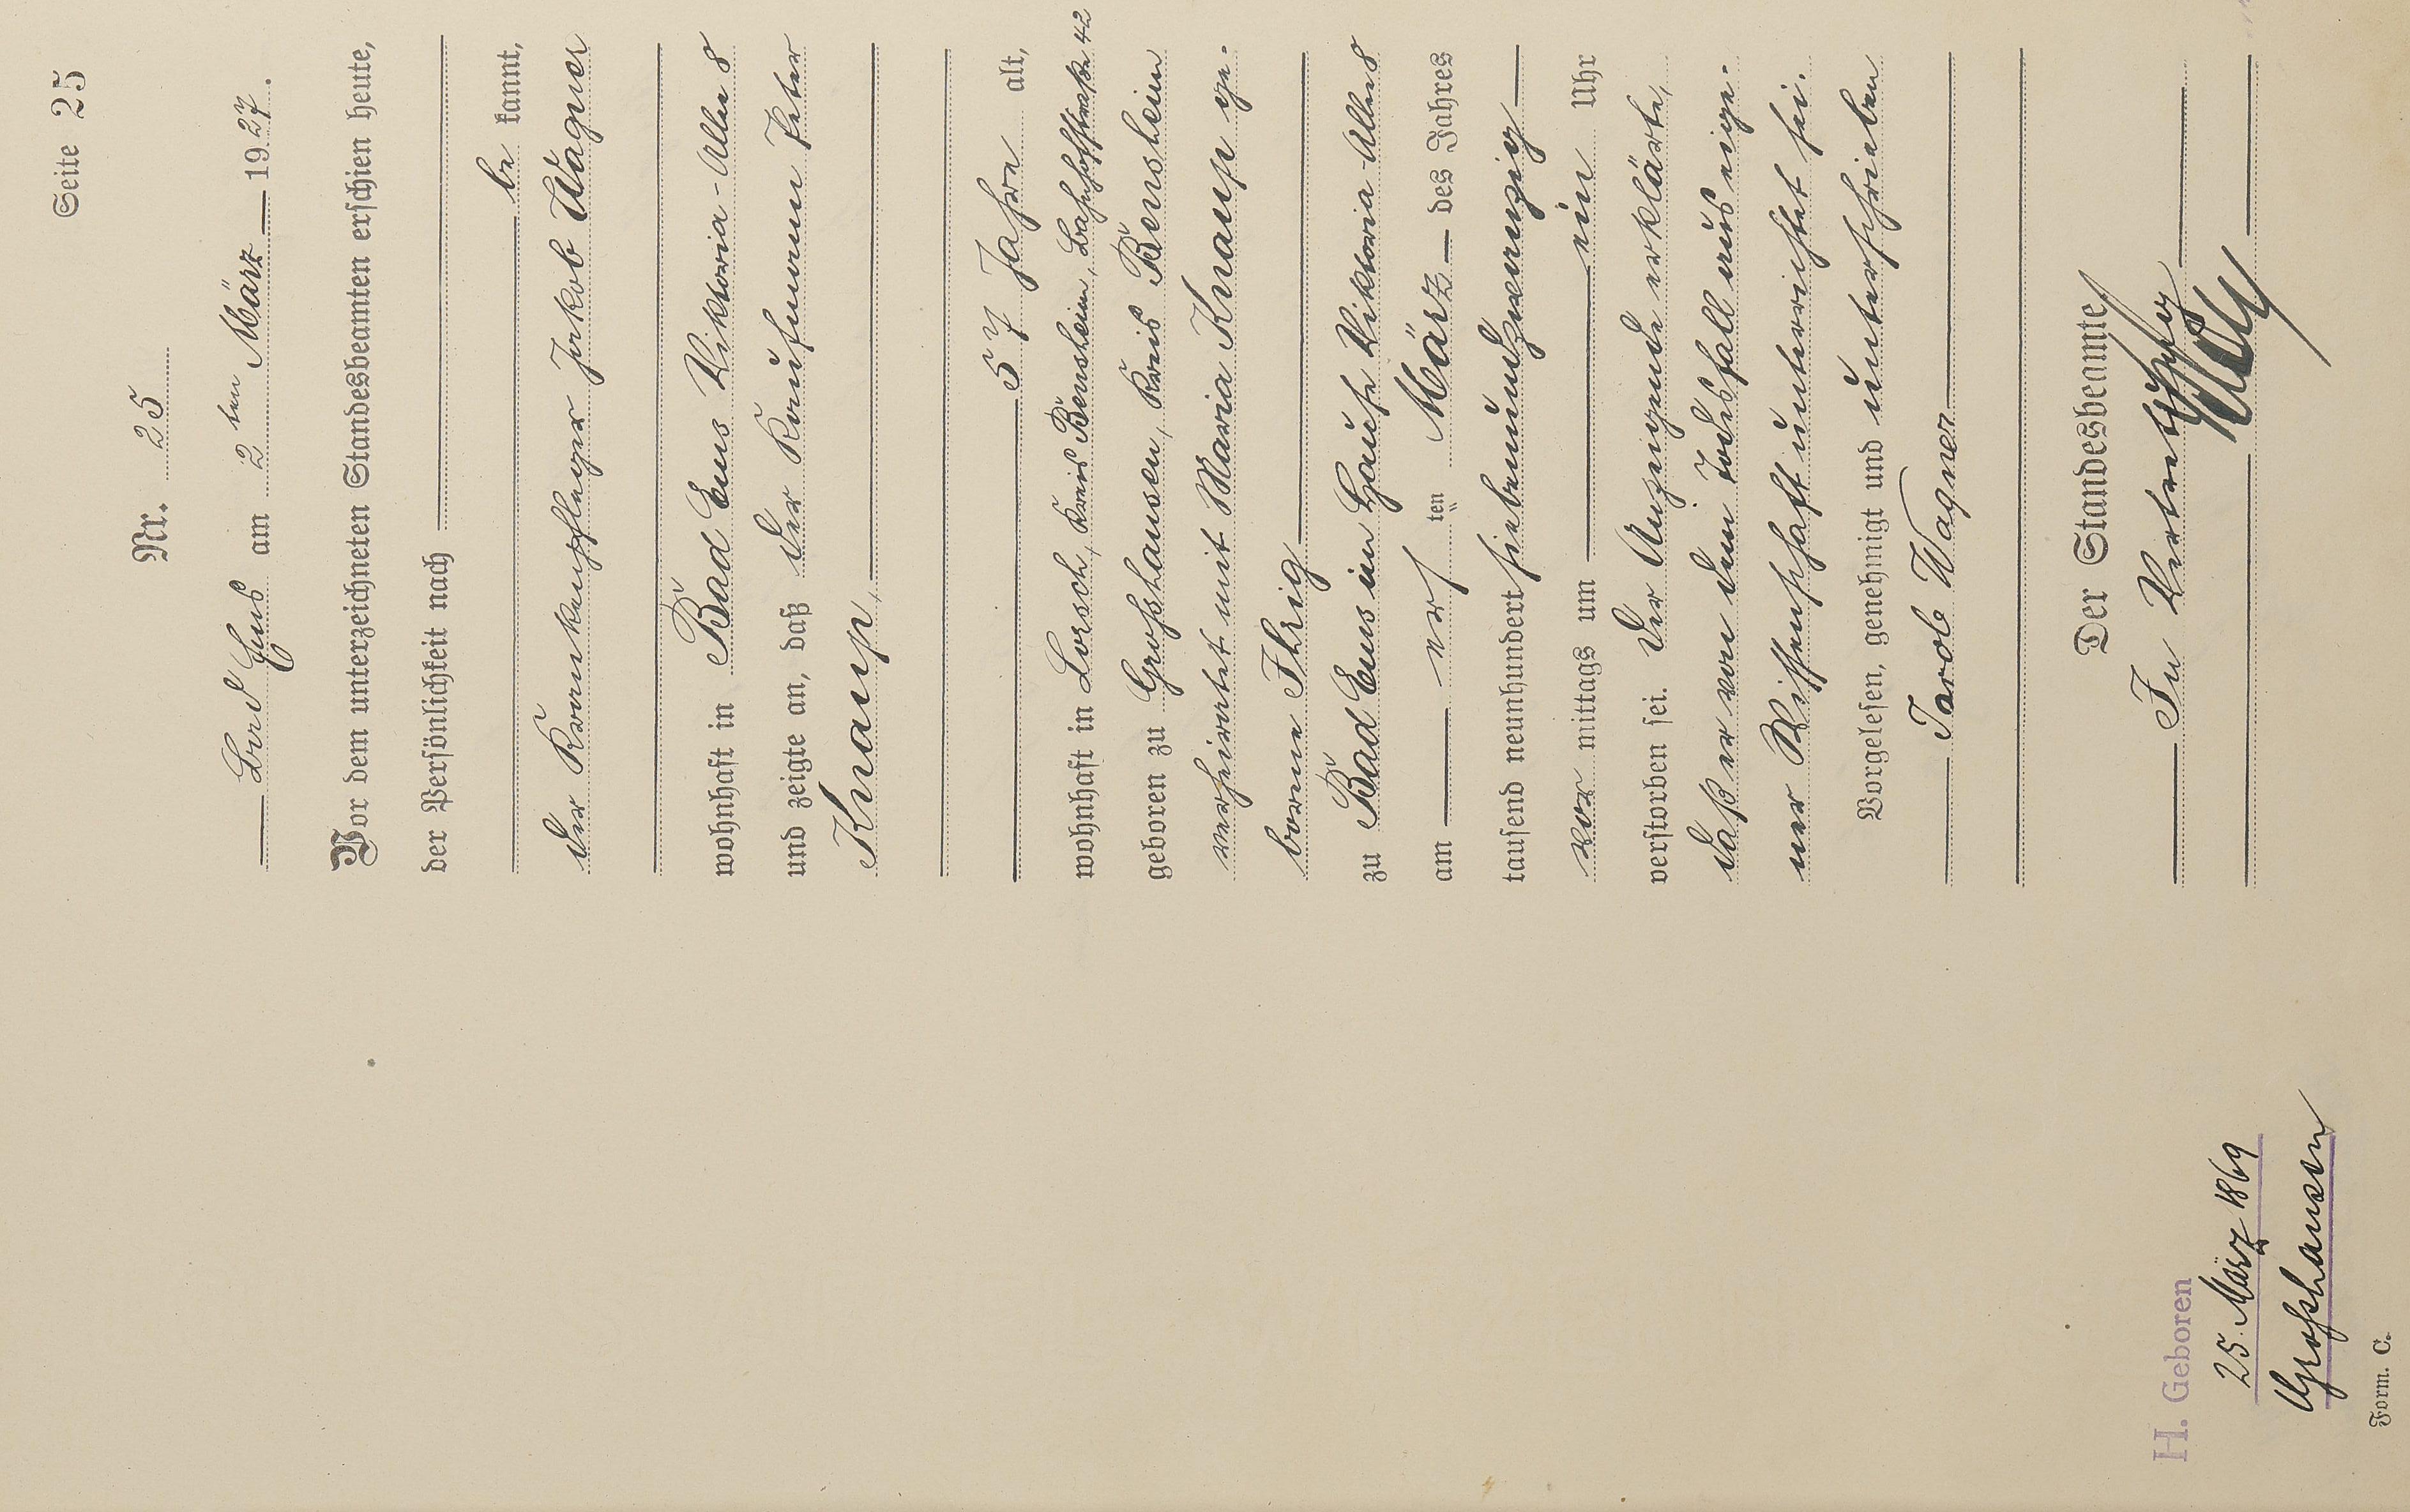 Seite 25
Nr. 25
Bad Ems am 2ten März 1927.
Vor dem unterzeichneten Standesbeamten erschien heute,
der Persönlichkeit nach
be kannt,
der Krankenpfleger Jakob Wagner
wohnhaft in Bad Ems Viktoria-Allee 8
und zeigte an, daß der Kaufmann Peter
Knaup,
57 Jahre alt,
wohnhaft in Lorsch, Kreis Bensheim, Bahnhofstraße 42
geboren zu Großhausen, Kreis Bensheim
verheiratet mit Maria Knaup ge-
borene Ihrig
zu Bad Ems im Hause Viktoria-Allee 8
am ersten März des Jahres
tausend neunhundert siebenundzwanzig
vor mittags um ein Uhr
verstorben sei. Der Anzeigende erklärte,
daß er von dem Todesfall aus eige-
ner Wissenschaft unterrichtet sei.
Vorgelesen, genehmigt und unterschrieben
Jacob Wagner
Der Standesbeamte
In Vertretung
H. Geboren
25. März 1869
Großhausen
Form. C.